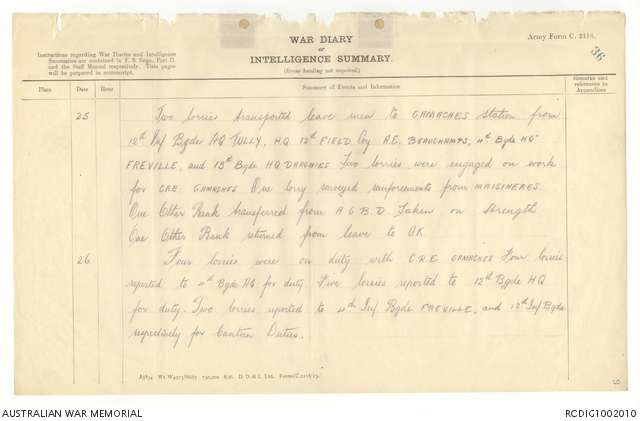 Army Form C. 2118.
WAR DIARY
or
INTELLIGENCE SUMMARY.
(Erase heading not required.)
Instructions regarding War Diaries and Intelligence
Summaries are contained in F. S. Regs., Part II.
and the Staff Manual respectively. Title pages
will be prepared in manuscript.
36
Place Date Hour Summary of Events and Information Remarks and
references to
Appendices
25 Two lorries transported leave men to GAMACHES Station from
12th Inf Bgde HQ TULLY, HQ 12th FIELD Coy A.E. BEAUCHAMPS, 4th Bgde HQ
FREVILLE, and 13th Bgde HQ DARGNIES Two lorries were engaged on work
for CRE GAMACHES One lorry conveyed reinforcements from
One Other Rank transferred from A G B D Taken on Strength
One Other Rank returned from leave to UK
26 Four lorries were on duty with C.R.E GAMACHES Four lorries
reported to 4th Bgde HQ for duty Five lorries reported to 12th Bgde HQ
for duty. Two lorries reported to 4th Inf Bgde FREVILLE, and 12th Inf Bgde
respectively for Canteen Duties.
D. D. & L. Ltd.
AUSTRALIAN WAR MEMORIAL
RCDIG1002010